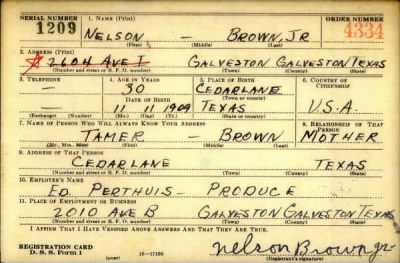 SERIAL NUMBER 1. NAME (Print) ORDER NUMBER
1209 NELSON — BROWN, JR 4334
(First) (Middle) (Last)
2. ADDRESS (Print)
2604 AVE I GALVESTON GALVESTON TEXAS
(Number and street or R. F. D. number) (Town) (County) (State)
3. TELEPHONE 4. AGE IN YEARS 5. PLACE OF BIRTH 6. COUNTRY OF CITIZENSHIP
— 30 CEDARLANE
DATE OF BIRTH (Town or county)
— 11 11 1909 TEXAS U.S.A.
(Exchange) (Number) (Mo.) (Day) (Yr.) (State or country)
7. NAME OF PERSON WHO WILL ALWAYS KNOW YOUR ADDRESS 8. RELATIONSHIP OF THAT PERSON
TAMER — BROWN MOTHER
(Mr., Mrs., Miss) (First) (Middle) (Last)
9. ADDRESS OF THAT PERSON
CEDARLANE TEXAS
(Number and street or R. F. D. number) (Town) (County) (State)
10. EMPLOYER'S NAME
ED. PERTHUIS - PRODUCE
11. PLACE OF EMPLOYMENT OR BUSINESS
2010 AVE B GALVESTON GALVESTON TEXAS
(Number and street or R. F. D. number) (Town) (County) (State)
I AFFIRM THAT I HAVE VERIFIED ABOVE ANSWERS AND THAT THEY ARE TRUE.
REGISTRATION CARD
D. S. S. Form 1 16—17105 Nelson Brown jr
(Registrant's signature)